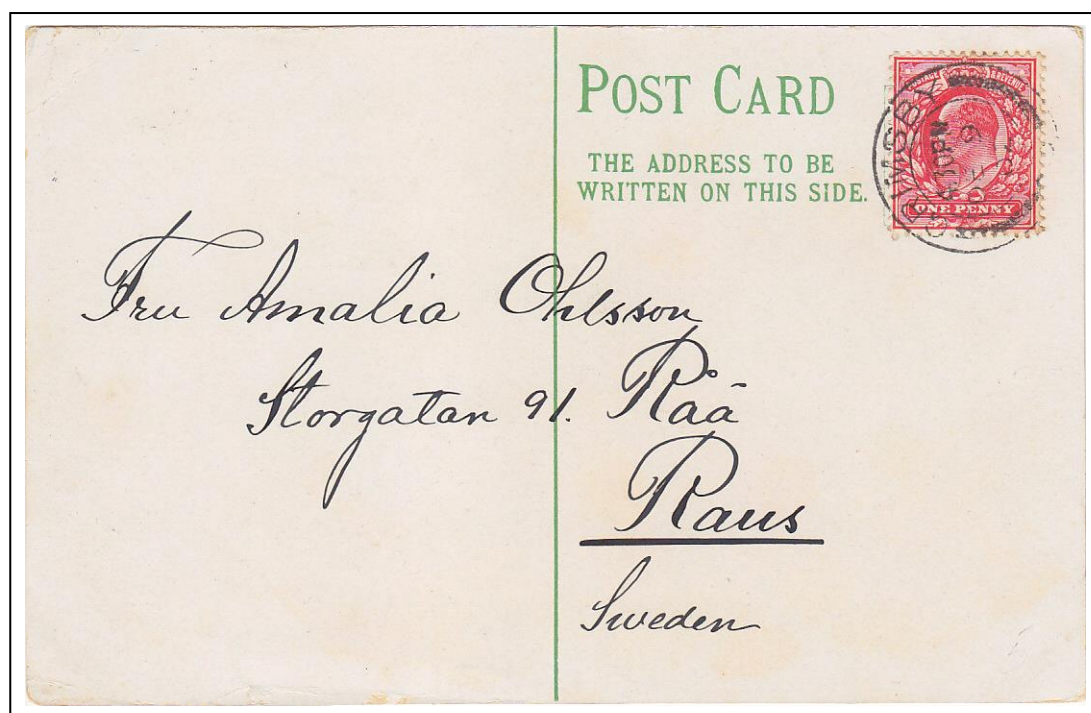 POST CARD
THE ADDRESS TO BE
WRITTEN ON THIS SIDE.
POSTAGE & REVENUE
ONE PENNY
GRIMSBY
Fru Amalia Ohlsson
Storgatan 91. Råå
Raus
Sweden